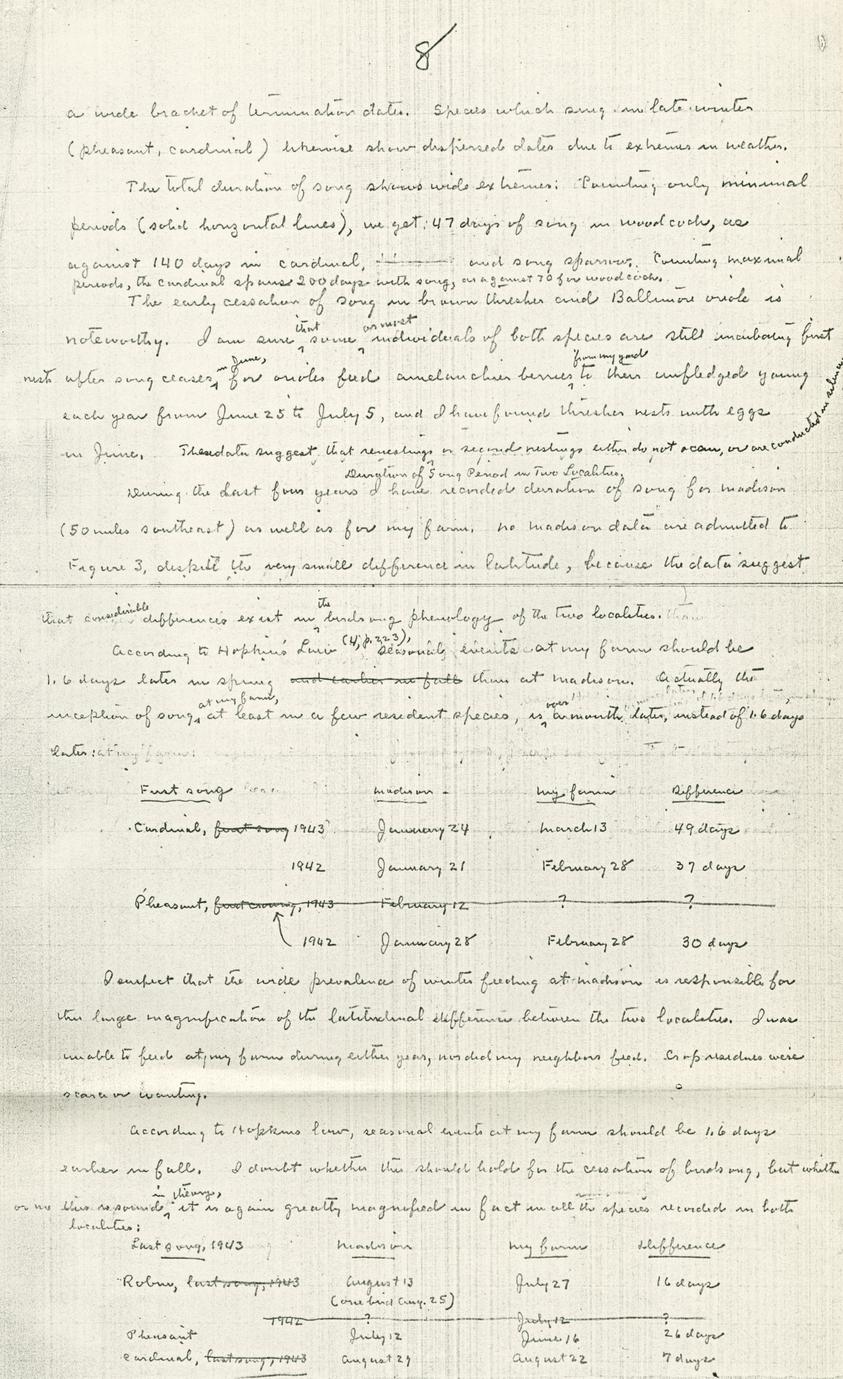 8
a wide bracket of termination dates. Species which sing in late winter
(pheasant, cardinal) likewise show dispersed dates due to extremes in weather.
The total duration of song shows wide extremes: Counting only minimal
periods (solid horizontal lines), we get 47 days of song in woodcock, as
against 140 days in cardinal, and song sparrow. Counting maximal
periods, the cardinal spans 200 days with song, as against 70 for woodcock.
The early cessation of song in brown thrasher and Baltimore oriole is
noteworthy. I am sure that some or most individuals of both species are still incubating first
nests after song ceases in June, for orioles feed amelanchier berries from my yard to their unfledged young
each year from June 25 to July 5, and I have found thrasher nests with eggs
in June. These data suggest that renestings or second nestings either do not occur, or are conducted in silence
Duration of Song Period in Two Localities.
During the last four years I have recorded duration of song for Madison
(50 miles southeast) as well as for my farm. No Madison data are admitted to
Figure 3, despite the very small difference in latitude, because the data suggest
that considerable differences exist in the birdsong phenology of the two localities.
According to Hopkins Law (4, p. 223), seasonal events at my farm should be
1.6 days later in spring and earlier in fall than at Madison. Actually the
inception of song at my farm, at least in a few resident species, is over a month later, instead of 1.6 days
later:
First song Madison My farm Difference
Cardinal, first song 1943 January 24 March 13 49 days
1942 January 21 February 28 37 days
Pheasant, first crowing, 1943 February 12 ? ?
1942 January 28 February 28 30 days
I suspect that the wide prevalence of winter feeding at Madison is responsible for
this large magnification of the latitudinal difference between the two localities. I was
unable to feed at my farm during either year, nor did my neighbors feed. Crop residues were
scarce or wanting.
According to Hopkins law, seasonal events at my farm should be 1.6 days
earlier in fall. I doubt whether this should hold for the cessation of birdsong, but whether
or no this is sound in theory, it is again greatly magnified in fact in all the species recorded in both
localities:
Last song, 1943 Madison My farm Difference
Robin, last song, 1943 August 13 July 27 16 days
(one bird Aug. 25)
1942 ? July 12 ?
Pheasant July 12 June 16 26 days
Cardinal, last song, 1943 August 29 August 22 7 days